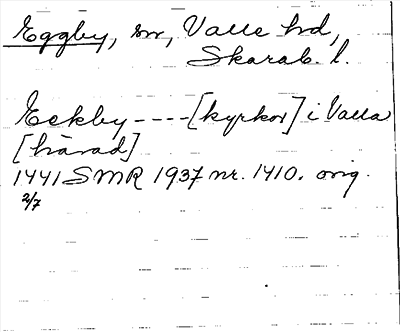 Eggby, sn, Valle hd,
Skarab. l.
Eekby ---- [kyrkor] i Valla
[härad]
1441 SMR 1937 nr. 1410. orig.
2/7